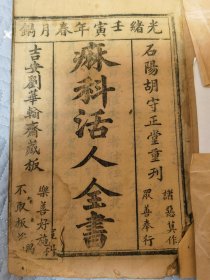 光緒壬寅年春月鐫
石陽胡守正堂重刊
諸惡莫作
眾善奉行
痳科活人全書
吉安劉華翰齋藏板
樂善好施
不取板